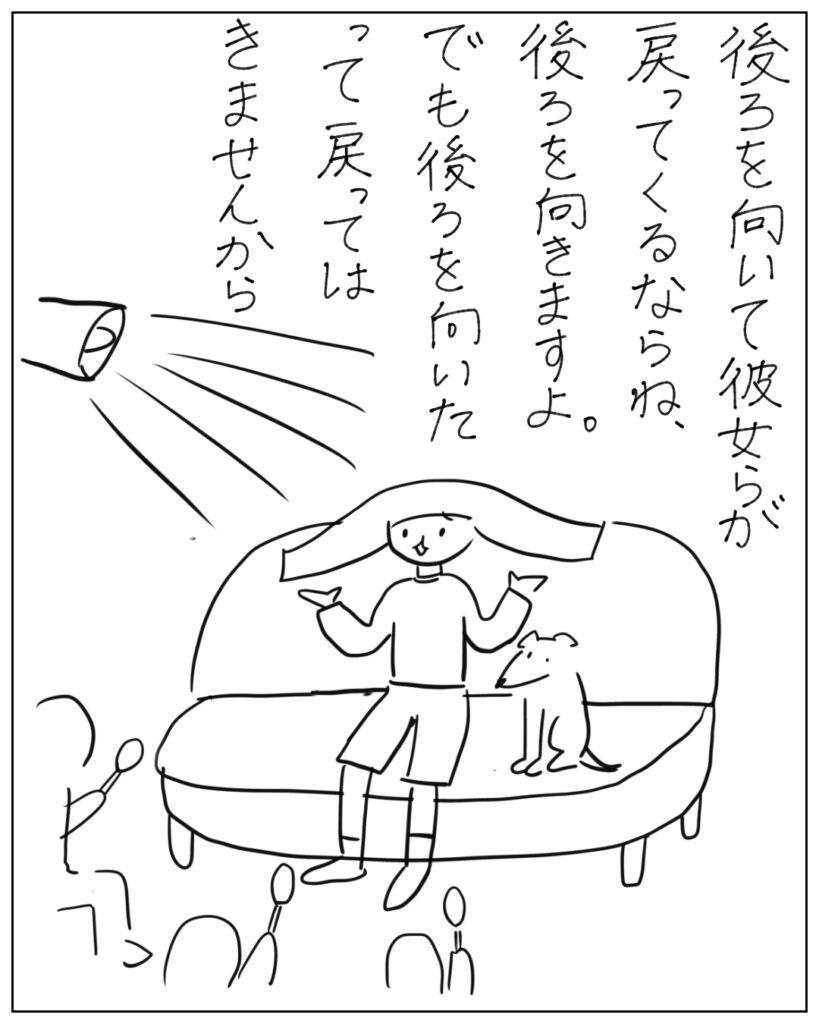 後ろを向いて彼女らが
戻ってくるならね、
後ろを向きますよ。
でも後ろを向いた
って戻っては
きませんから